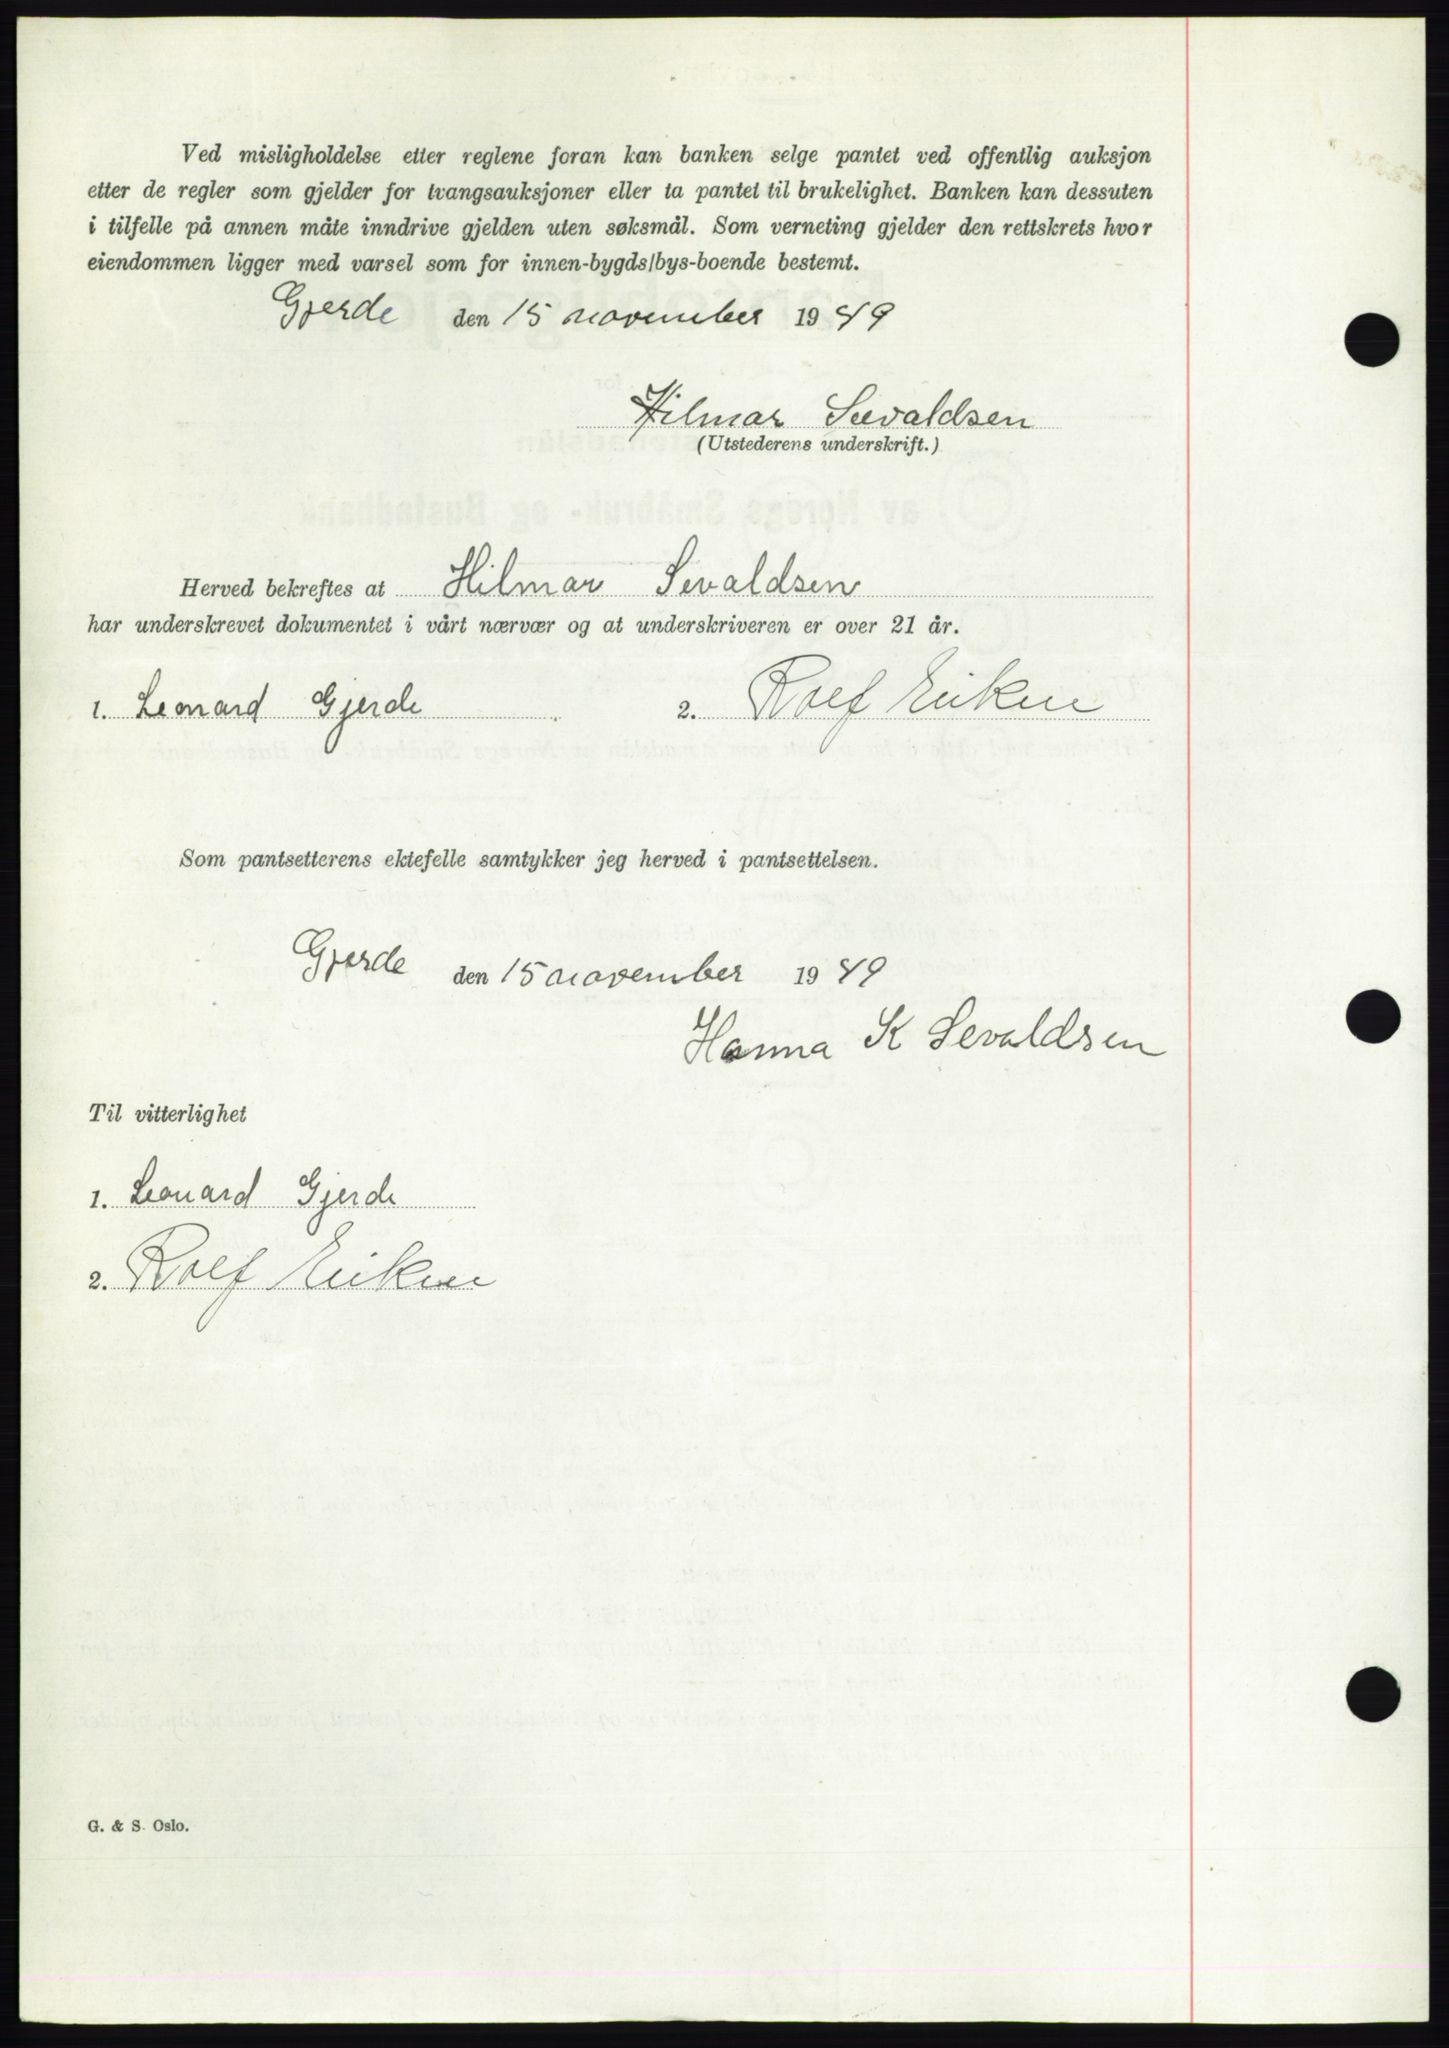 Ved misligholdelse etter reglene foran kan banken selge pantet ved offentlig auksjon
etter de regler som gjelder for tvangsauksjoner eller ta pantet til brukelighet. Banken kan dessuten
i tilfelle på annen måte inndrive gjelden uten søksmål. Som verneting gjelder den rettskrets hvor
eiendommen ligger med varsel som for innen-bygds/bys-boende bestemt.
Gjerde den 15 november 1949
Hilmar Sevaldsen
(Utstederens underskrift.)
Herved bekreftes at Hilmar Sevaldsen
har underskrevet dokumentet i vårt nærvær og at underskriveren er over 21 år.
1. Leonard Gjerde 2. Rolf
Som pantsetterens ektefelle samtykker jeg herved i pantsettelsen.
Gjerde den 15 november 1949
Hanna K Sevaldsen
Til vitterlighet
1. Leonard Gjerde
2. Rolf
G. & S. Oslo.